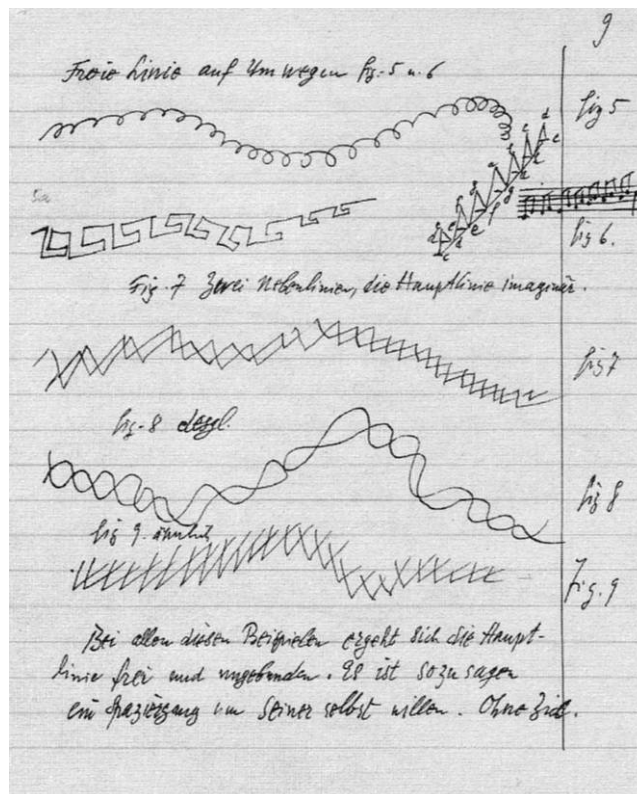 9
Freie Linie auf Umwegen fig. 5 u. 6
fig 5
fig 6.
Fig. 7 Zwei Nebenlinien, die Hauptlinie imaginär.
fig 7
fig. 8 desgl.
fig 8
fig 9. ähnlich
Fig. 9
Bei allen diesen Beispielen ergeht sich die Haupt-
linie frei und ungebunden. Es ist sozusagen
ein Spaziergang um seiner selbst willen. Ohne Ziel.